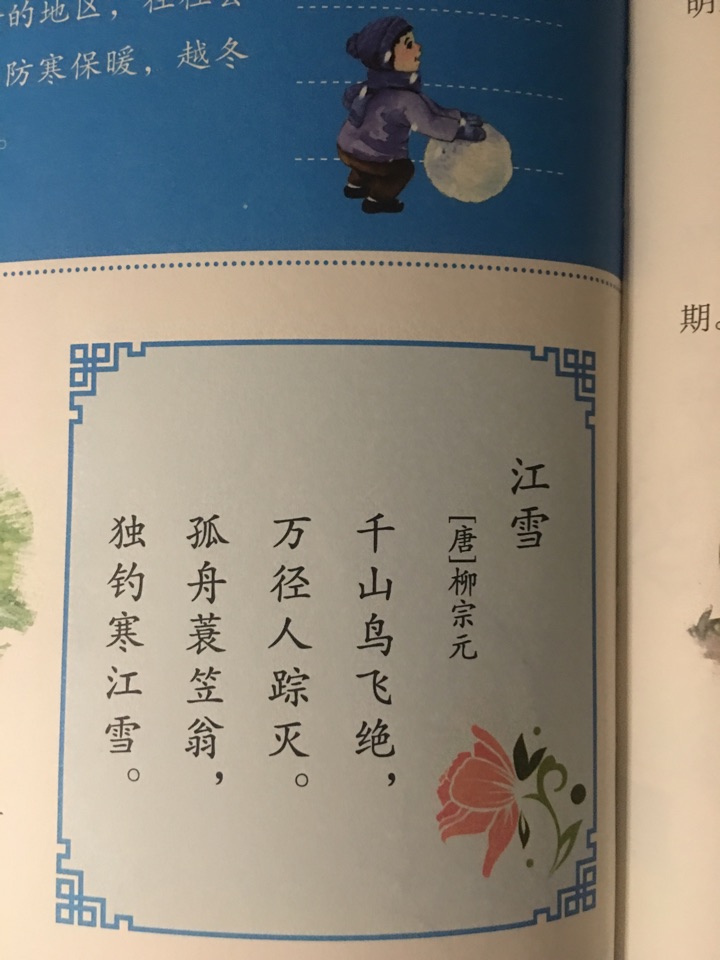 的地区，往往会
防寒保暖，越冬
。
江雪
［唐］柳宗元
千山鸟飞绝，
万径人踪灭。
孤舟蓑笠翁，
独钓寒江雪。
明
期。